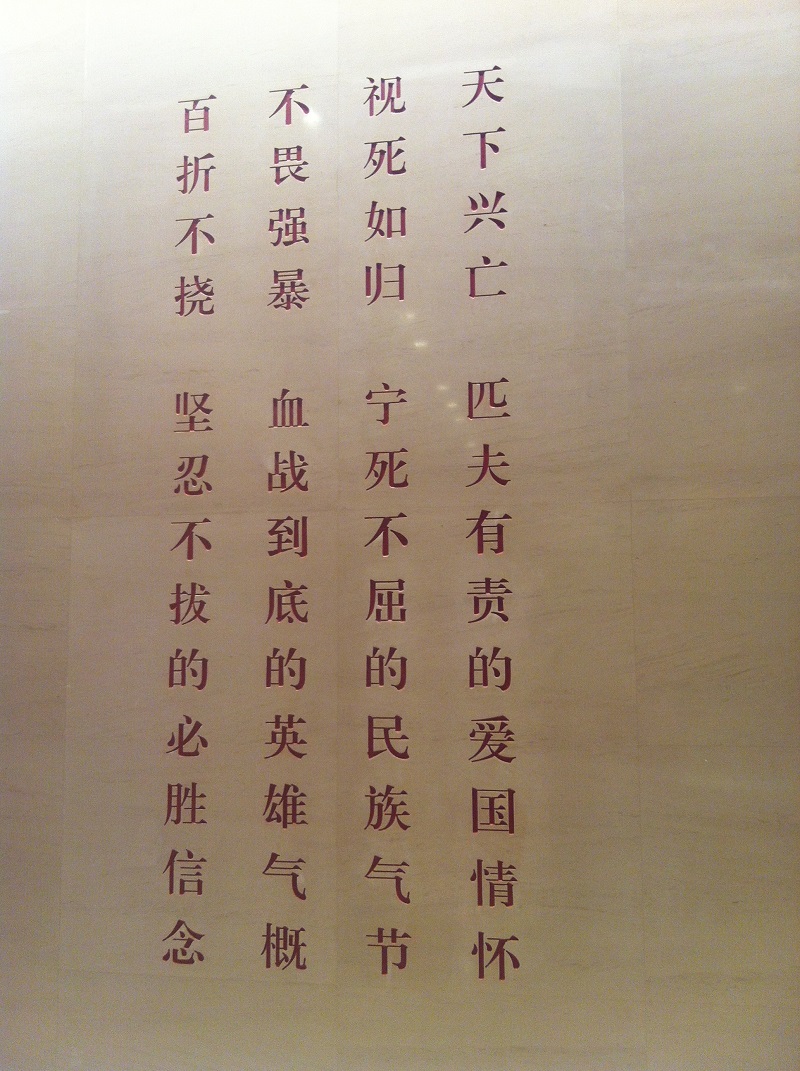 天下兴亡 匹夫有责的爱国情怀
视死如归 宁死不屈的民族气节
不畏强暴 血战到底的英雄气概
百折不挠 坚忍不拔的必胜信念